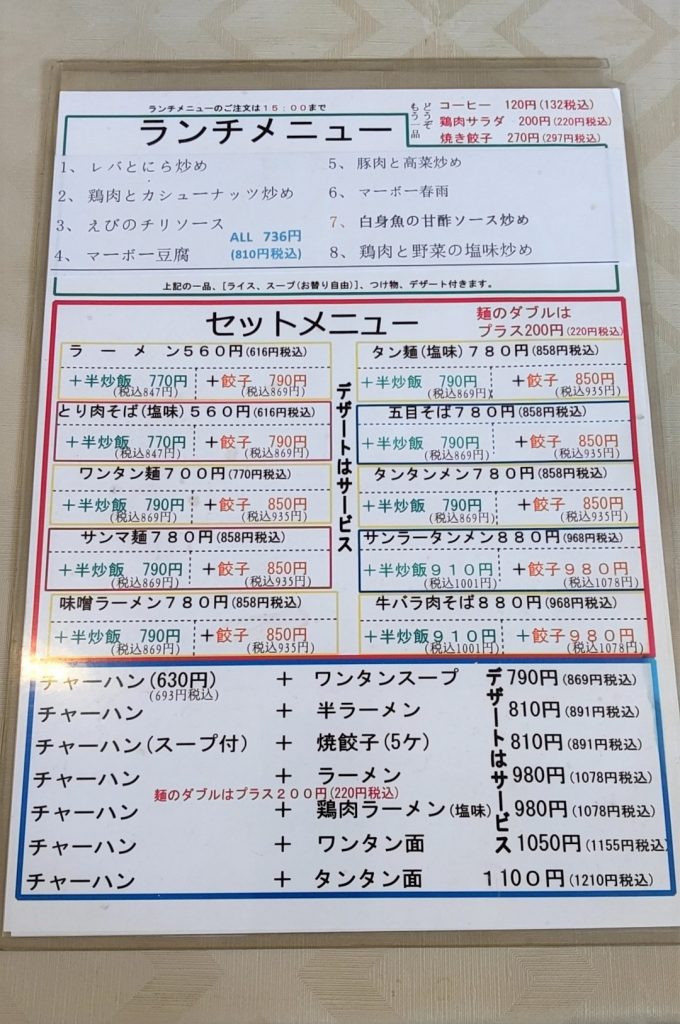 ランチメニューのご注文は15:00まで
ランチメニュー
どうぞもう一品
コーヒー 120円(132税込)
鶏肉サラダ 200円(220円税込)
焼き餃子 270円(297円税込)
1、レバとにら炒め
2、鶏肉とカシューナッツ炒め
3、えびのチリソース
4、マーボー豆腐
ALL 736円
(810円税込)
5、豚肉と高菜炒め
6、マーボー春雨
7、白身魚の甘酢ソース炒め
8、鶏肉と野菜の塩味炒め
上記の一品、[ライス、スープ(お替り自由)]、つけ物、デザート付きます。
セットメニュー
麺のダブルは
プラス200円(220円税込)
ラーメン560円(616円税込)
+半炒飯 770円 +餃子 790円
(税込847円) (税込869円)
とり肉そば(塩味)560円(616円税込)
+半炒飯 770円 +餃子 790円
(税込847円) (税込869円)
ワンタン麺700円(770円税込)
+半炒飯 790円 +餃子 850円
(税込869円) (税込935円)
サンマ麺780円(858円税込)
+半炒飯 790円 +餃子 850円
(税込869円) (税込935円)
味噌ラーメン780円(858円税込)
+半炒飯 790円 +餃子 850円
(税込869円) (税込935円)
デザートはサービス
タン麺(塩味)780円(858円税込)
+半炒飯 790円 +餃子 850円
(税込869円) (税込935円)
五目そば780円(858円税込)
+半炒飯 790円 +餃子 850円
(税込869円) (税込935円)
タンタンメン780円(858円税込)
+半炒飯 790円 +餃子 850円
(税込869円) (税込935円)
サンラータンメン880円(968円税込)
+半炒飯910円 +餃子980円
(税込1001円) (税込1078円)
牛バラ肉そば880円(968円税込)
+半炒飯910円 +餃子980円
(税込1001円) (税込1078円)
チャーハン(630円) + ワンタンスープ 790円(869円税込)
(693円税込)
チャーハン + 半ラーメン 810円(891円税込)
チャーハン(スープ付) + 焼餃子(5ケ) 810円(891円税込)
チャーハン + ラーメン 980円(1078円税込)
麺のダブルはプラス200円(220円税込)
チャーハン + 鶏肉ラーメン(塩味) 980円(1078円税込)
チャーハン + ワンタン面 1050円(1155円税込)
チャーハン + タンタン面 1100円(1210円税込)
デザートはサービス